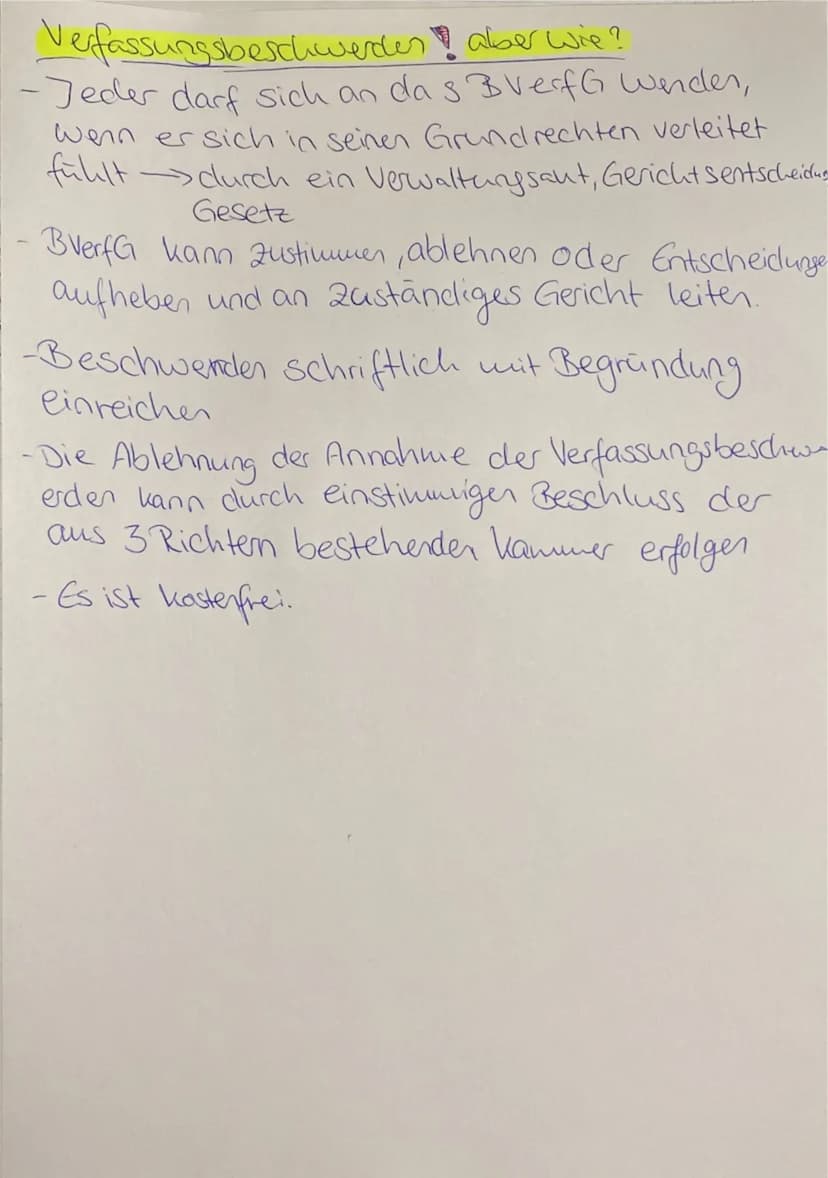 Verfassungsbeschwerden! aber wie?
- Jeder darf sich an das BVerfG wenden,
wenn er sich in seinen Grundrechten verleitet
fühlt → durch ein Verwaltungsamt, Gerichtsentscheidung
Gesetz
- BVerfG kann zustimmen, ablehnen oder Entscheidunge
aufheben und an zuständiges Gericht leiten.
- Beschwerden schriftlich mit Begründung
einreichen
- Die Ablehnung der Annahme der Verfassungsbeschw-
erden kann durch einstimmigen Beschluss der
aus 3 Richtern bestehenden Kammer erfolgen
- Es ist kostenfrei.